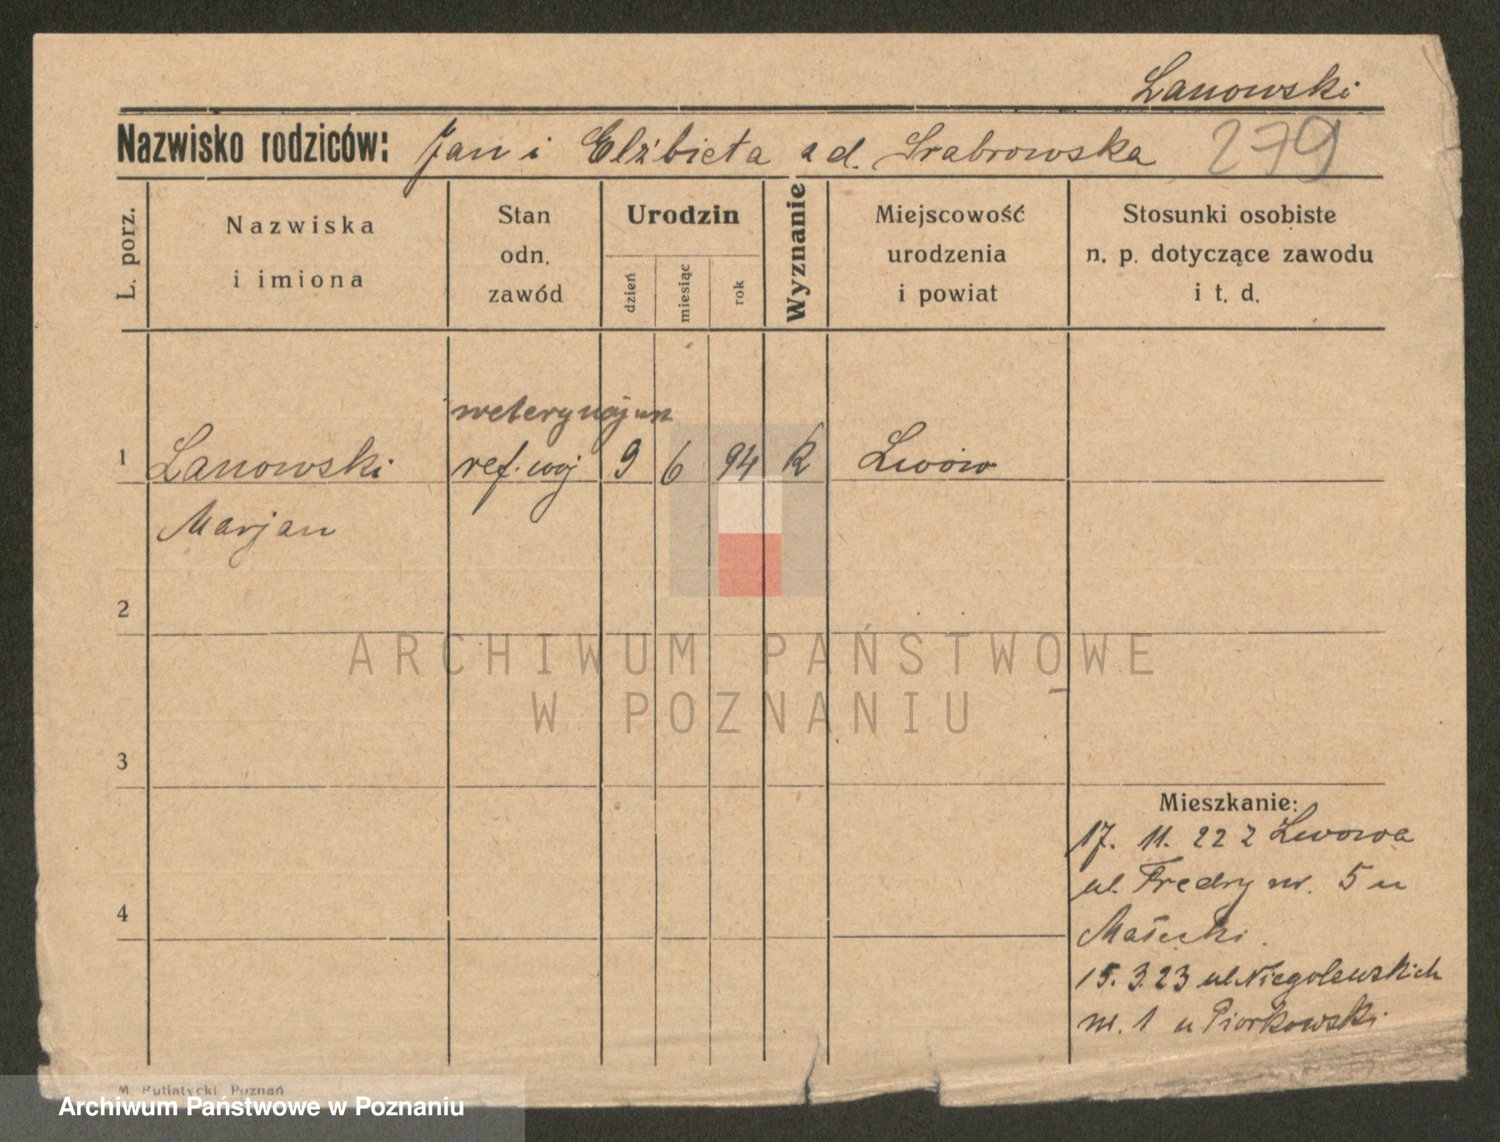 Lanowski
Nazwisko rodziców: Jan i Elżbieta a d. Srabrowska 279
L. porz.
Nazwiska
i imiona
Stan
odn.
zawód
Urodzin
dzień
miesiąc
rok
Wyznanie
Miejscowość
urodzenia
i powiat
Stosunki osobiste
n. p. dotyczące zawodu
i t. d.
1 Lanowski ref. woj 9 6 94 k Lwów
Marjan
2
ARCHIWUM PAŃSTWOWE
W POZNANIU
3
Mieszkanie:
17. 11. 22 z Lwowa
ul. Fredry nr. 5 u
Małecki.
4
15. 3. 23 ul Niegolewskich
nr. 1 u Piorkowski
M. Putiatycki, Poznań
Archiwum Państwowe w Poznaniu